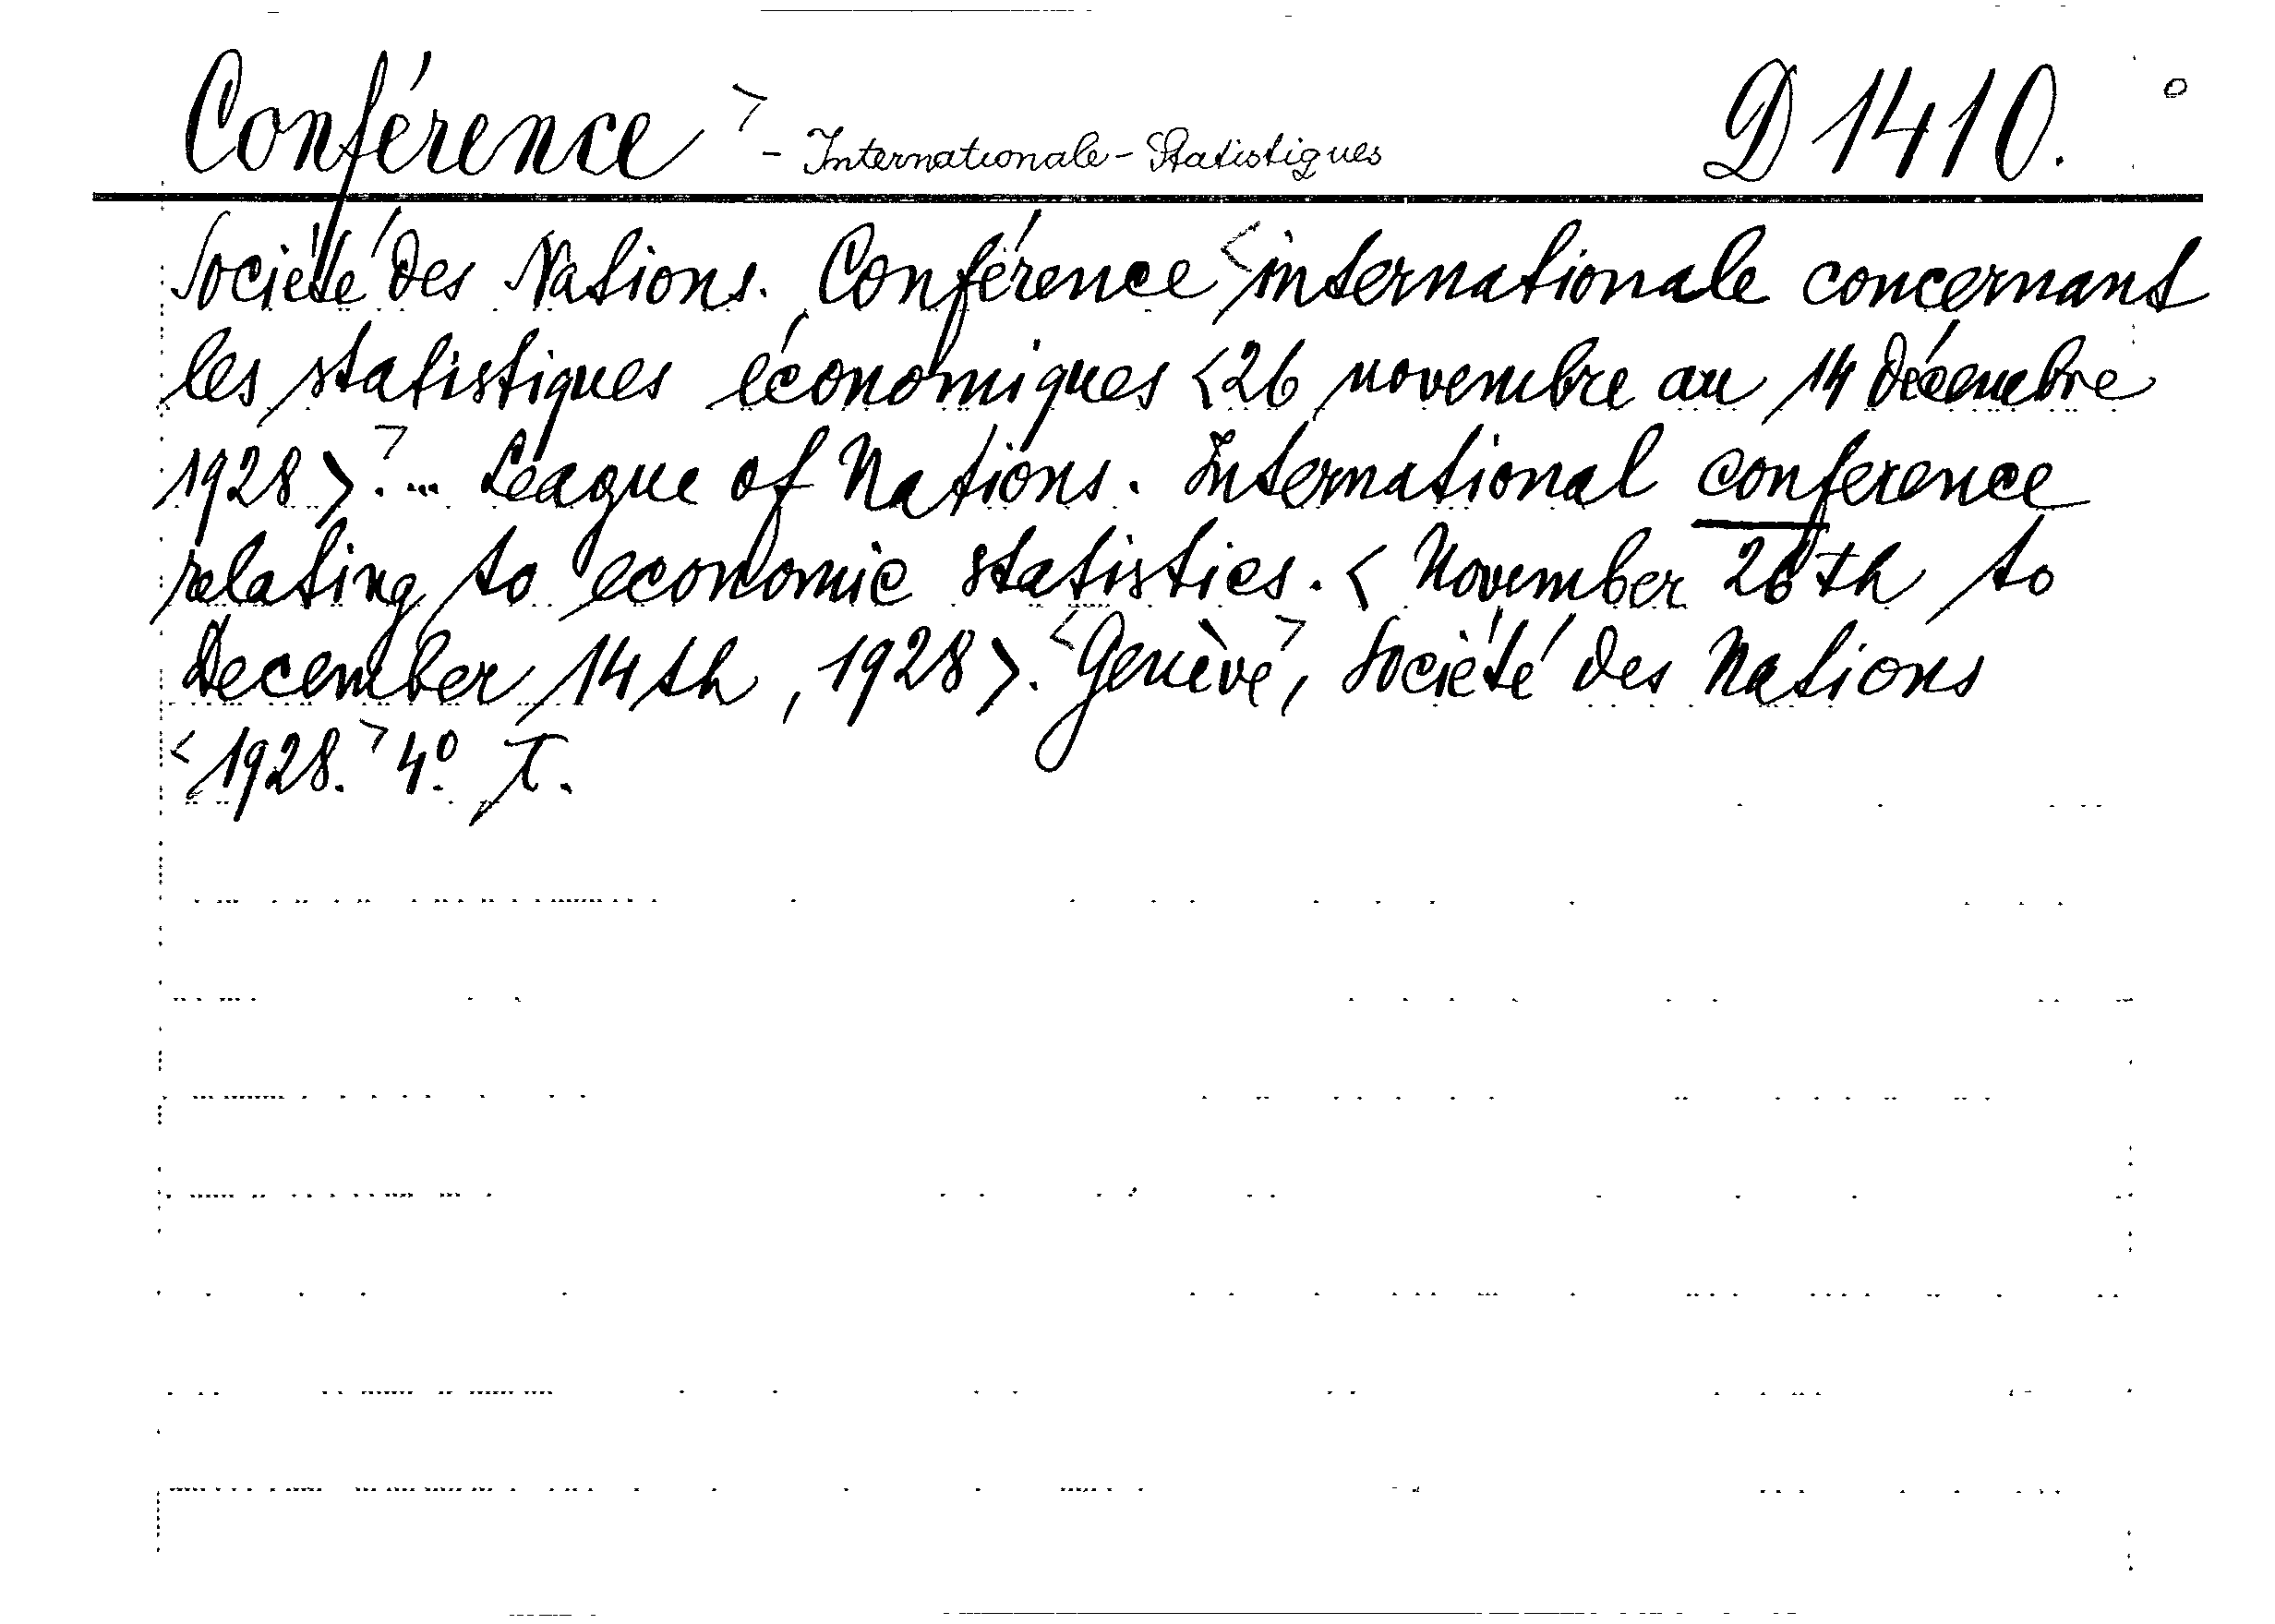 Conférence ¬ - Internationale - Statistiques D 1410.
Société des Nations. Conférence <internationale concernant
les statistiques économiques <26 novembre au 14 décembre
1928>¬. ... League of Nations. International conference
relating to economic statistics. < November 26th to
December 14th, 1928>. <Genève¬, Société des Nations
<1928.¬ 4º. T.